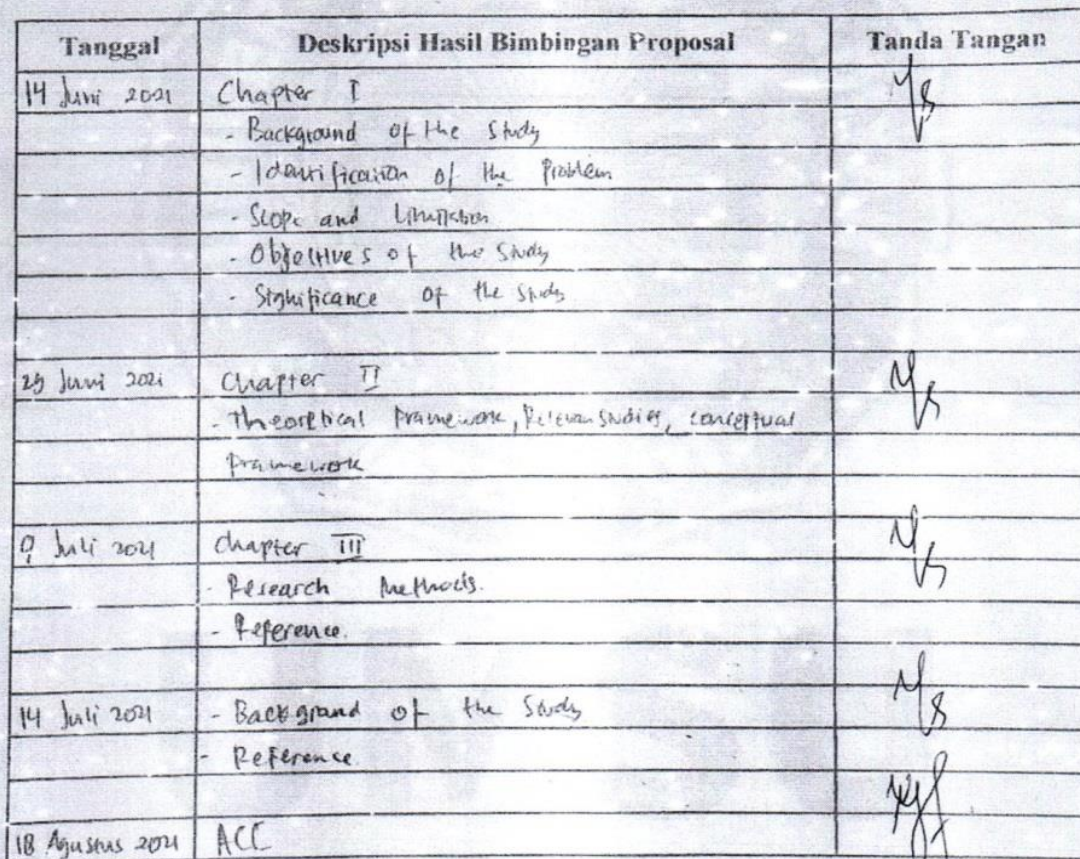 Tanggal Deskripsi Hasil Bimbingan Proposal Tanda Tangan
14 Juni 2021 Chapter I
- Background of the Study
- Identification of the Problem
- Scope and Limitation
- Objectives of the Study
- Significance of the Study
Juni 2021 Chapter II
- Theoretical Framework, Relevan Studies, conceptual
Framework
9 Juli 2021 Chapter III
- Research Methods.
- Reference.
14 Juli 2021 - Background of the Study
- Reference
18 Agustus 2021 ACC